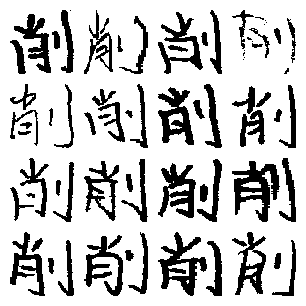 削削削削
削削削削
削削削削
削削削削